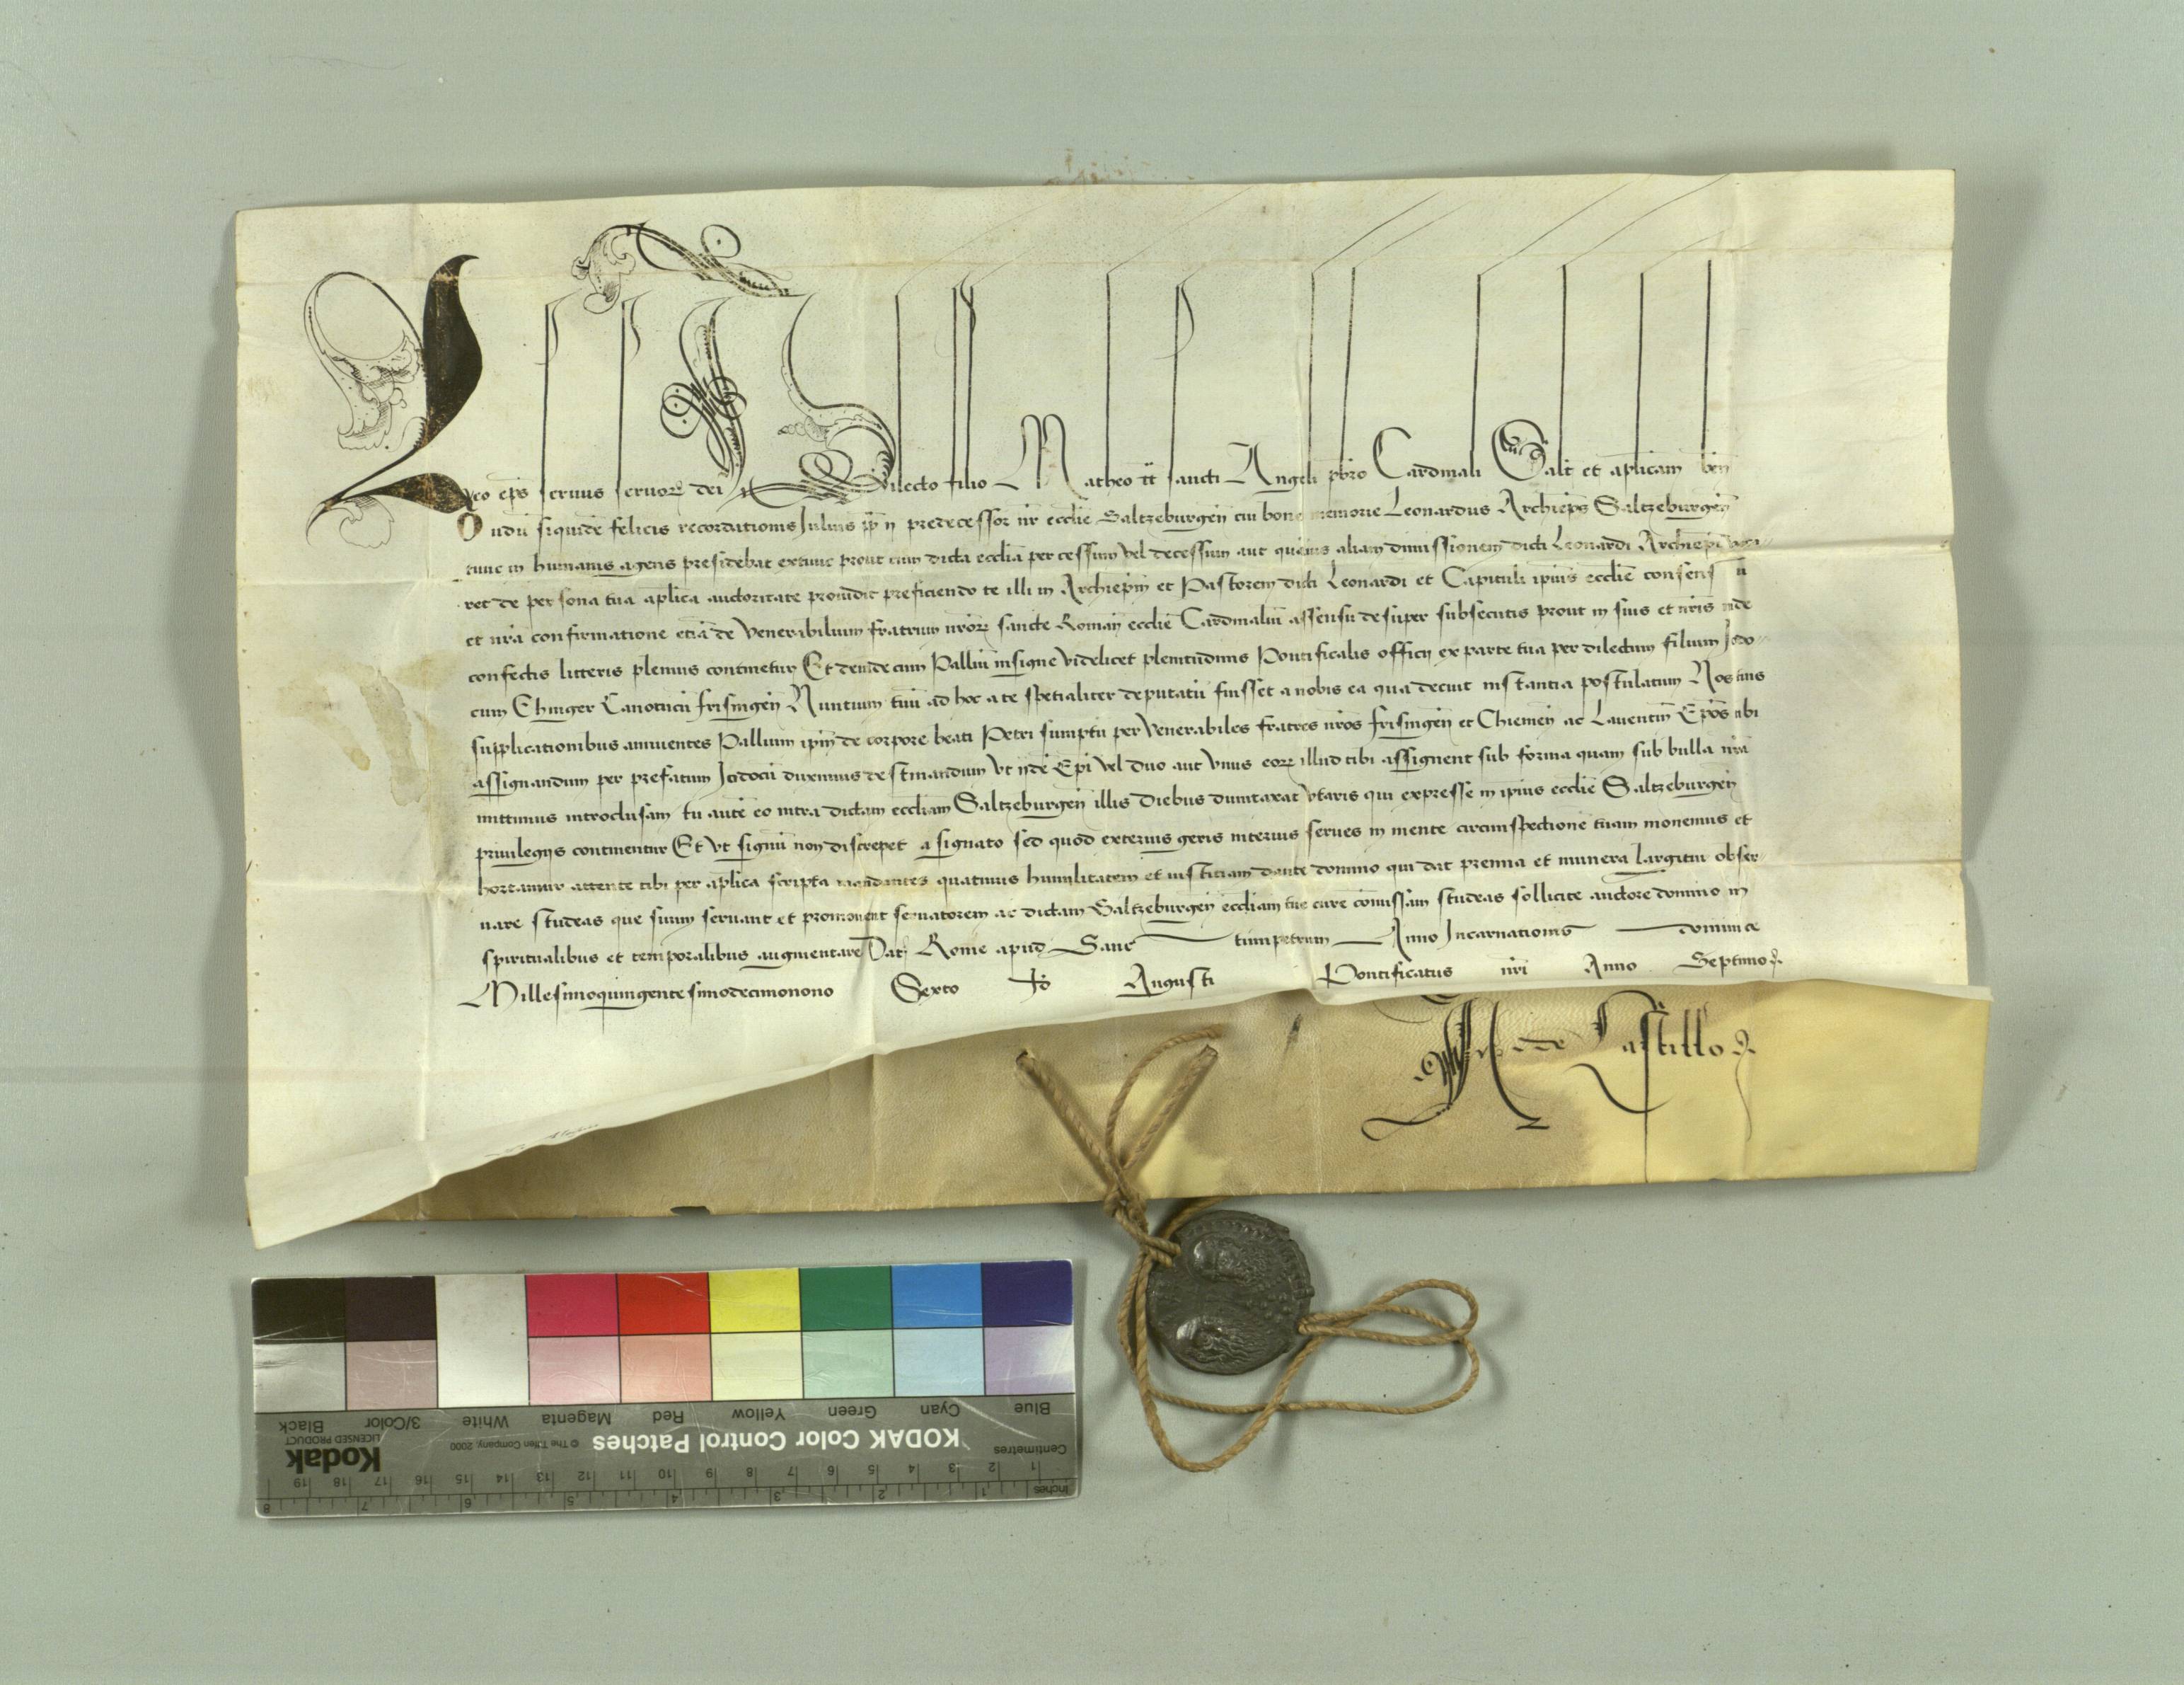 Leo ep̄s seruus seruoꝝ dei Dilecto filio Matheo tt̄ sancti Angeli pbro Cardinali Salt̄ et ap̄licam ben̄
Dudū siquidē felicis recordationis Julius pp̄ ij predecessor nr̄ ecclie Saltzeburgen̄ cui bone memorie Leonardus Archiep̄s Saltzeburgen̄
tunc in humanis agens presidebat extunc prout cum dicta ecclia per cessum vel decessum aut quāuis aliam dimissionem dicti Leonardi Archiep̄i
ret de persona tua aplica auctoritate prouidit preficiendo te illi in Archiep̄m et Pastorem dicti Leonardi et Capituli ip̄ius ecclie
et nr̄a confirmatione etiā de Venerabilium fratrum nr̄oꝝ sancte Roman̄ ecclie Cardinaliū assensu desuper subsecutis prout in suis et nr̄is inde
confectis litteris plenius continetur Et deinde cum Palliū insigne videlicet plenitudinis Pontificalis officij ex parte tua per dilectum filium Jodo-
cum Ehinger Canonicū frisingen̄ Nuntium tuū ad hoc a te spetialiter deputatū fuisset a nobis ea qua decuit instantia postulatum Nos tuis
supplicationibus annuentes Pallium ip̄m de corpore beati Petri sumptū per Venerabiles fratres nr̄os frisingen̄ et Chiemen̄ ac Lauentin̄ Ep̄os tibi
assignandum per prefatum Jodocū duximus destinandum vt ijdē Ep̄i vel duo aut vnus eoꝝ illud tibi assignent sub forma quam sub bulla nr̄a
mittimus introclusam tu autē eo intra dictam eccliam Saltzeburgen̄ illis diebus dumtaxat vtaris qui expresse in ip̄ius ecclie Saltzeburgen̄
priuilegijs continentur Et vt signū non discrepet a signato sed quod exterius geris interius serues in mente circumspectionē tuam monemus et
hortamur attente tibi per aplica scripta mandantes quatinus humilitatem et iustitiam dante domino qui dat premia et munera largitur obser-
uare studeas que suum seruant et promouent seruatorem ac dictam Saltzeburgen̄ eccliam tue cure cōmissam studeas sollicite auctore domino in
spiritualibus et temporalibus augmentare Dat̄ Rome apud Sanc tumpetrum Anno Incarnationis dominice
Millesimoquingentesimodecimonono Sexto Augusti Pontificatus nr̄i Anno Septimo
de Castillo
Blue Cyan Green Yellow Red Magenta White 3/Color Black
KODAK Color Control Patches © The Tiffen Company, 2000 Kodak LICENSED PRODUCT
Centimetres 1 2 3 4 5 6 7 8 9 10 11 12 13 14 15 16 17 18 19
Inches 1 2 3 4 5 6 7 8